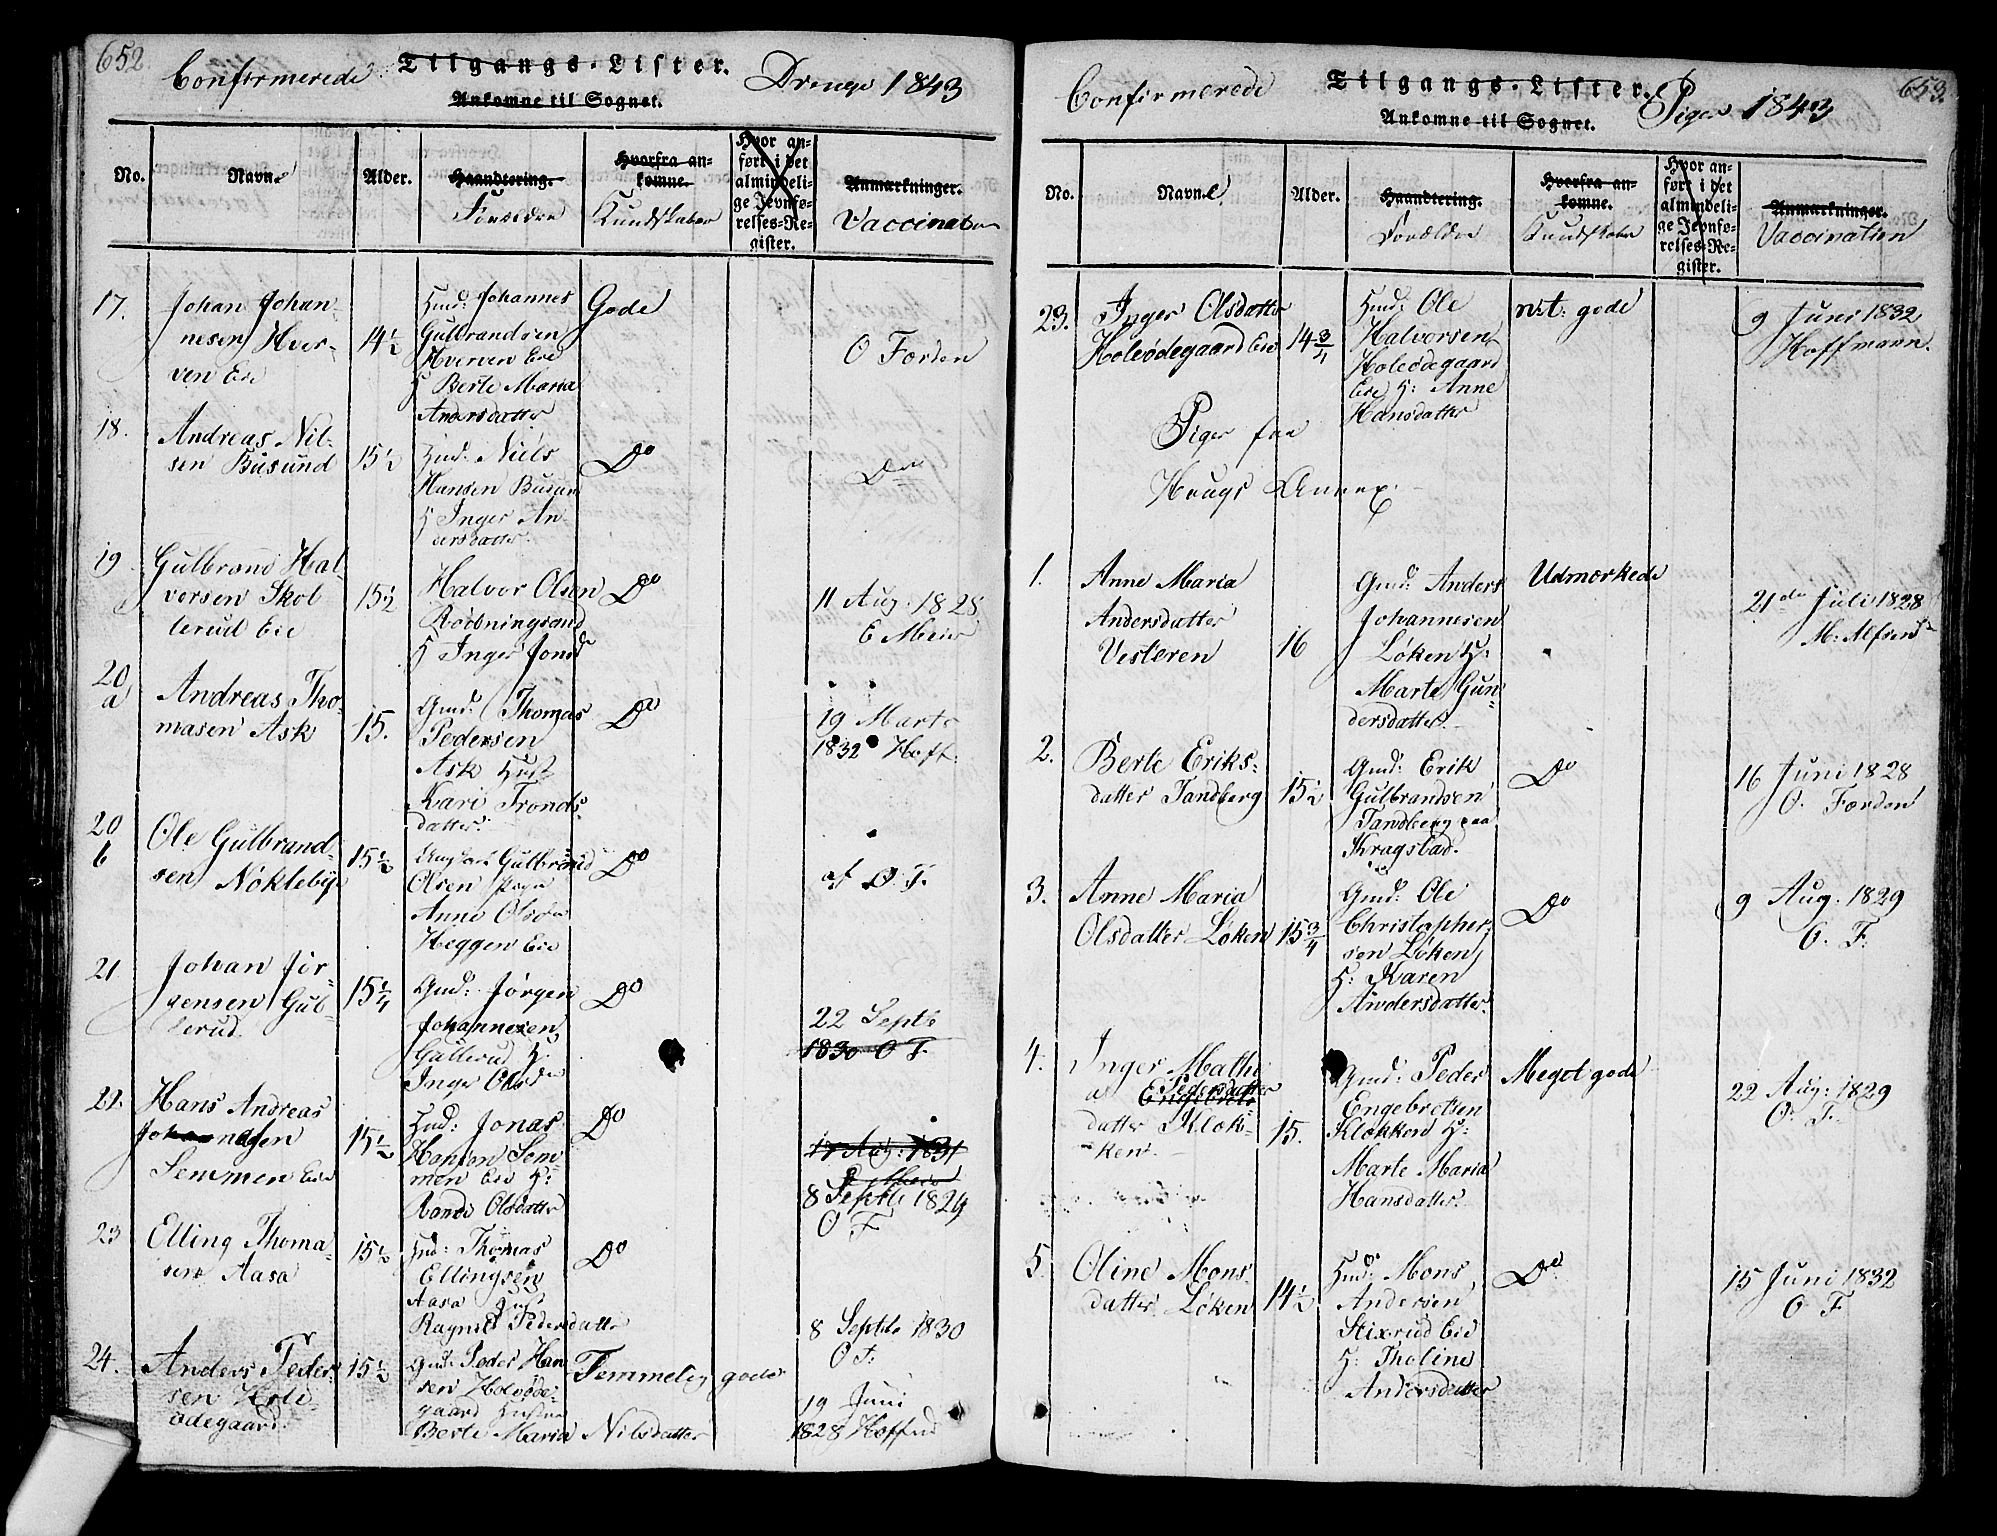 652.
Confirmerede Tilgangs-Lister. Drenge 1843
Ankomne til Sognet.
No. Navne Alder. Haandtering. Hvorfra ankomne. Hvor anført i det almindelige Jevnførelses-Register. Anmærkninger.
Forældre Kundskaber Vaccination
17. Johan Johan-
nesen Hver-
ven Eie
14½
Huusd: Johannes
Gulbrandsen
Hverven Eie
H Berte Maria
Andersdatter
Gode
O Førden
18. Andreas Nil-
sen Busund
15½
Huusd: Niels
Hansen Busun
H Inger An-
dersdatter
Do
Do
19. Gulbrand Hal-
vorsen Skol
lerud Eie
15½
Halvor Olsen
Rødningsand
H Inger Jonsd
Do
11 Aug. 1828
E Meier
20
a
Andreas Tho-
masen Ask
15.
Gmd: Thomas
Pedersen
Ask Hust
Kari Tronds-
datter.
Do
19 Marts
1832 Hoff.
20
b
Ole Gulbrand-
sen Nøkleby
15½
Gulbrand
Olsen
Anne Olsda
Heggen Eie
Do
af O. F.
21
Johan Jør-
gensen Gul-
lerud.
15¼
Gmd: Jørgen
Johannesen
Gullerud H.
Inger Olsda
Do
22 Septb
1830 O F.
22. Hans Andreas
Johannesen
Semmen Eie
15½
Huusd: Jonas
Hansen Sem-
men Eie H:
Rande Olsdatter
Do
17 Aug. 1831
E Meier
8 Septb 1829
O F
23
Elling Thoma-
sen Aasa
15½
Huusd: Thomas
Ellingsen
Aasa Hust
Ragnild Pedersdatter
Do
8 Septb 1830
O F.
24. Anders Peder-
sen Hole
ødegaard.
15½
Gmd: Peder Han
sen Holeøde-
gaard Hustru
Berte Maria Nilsdatter
Temmelig gode
19 Juni
1828 Hoffm
653.
Confirmerede Tilgangs-Lister. Piger 1843
Ankomne til Sognet.
No. Navne Alder. Haandtering. Hvorfra ankomne. Hvor anført i det almindelige Jevnførelses-Register. Anmærkninger.
Forældre Kundskaber Vaccination
23. Inger Olsdatter
Holeødegaard Eie
14¾
Huusd: Ole
Halvorsen
Holeødegaard
Eie H: Anne
Hansdatter
n:t: gode
9 Juni 1832
Hoffmann.
Piger fra
Hougs Annex.
1. Anne Maria
Andersdatter
Vesteren
16
Gmd: Anders
Johannesen
Løken H:
Marte Gun-
dersdatter.
Udmærkede
21de Juli 1828
M: Alfsend
2. Berte Eriks-
datter Tandberg
15½
Gmd: Erik
Gulbrandsen
Tandberg paa
Kragstad.
Do
16 Juni 1828
O. Førden
3. Anne Maria
Olsdatter Løken
15¾
Gmd: Ole
Christopher-
sen Løken
H: Karen
Andersdatter.
Do
9 Aug. 1829
O. F.
4. Inger Mathi
a Pedersdatter
Engebrets-
datter Klok-
ken.
15.
Gmd: Peder
Engebretsen
Klokken H:
Marte Maria
Hansdatter.
Meget gode
22 Aug: 1829
O. F.
5. Oline Mons-
datter Løken
14½
Huusd: Mons
Andersen
Stixrud Eie
H: Tholine
Andersdatter
Do
15 Juni 1832
O F